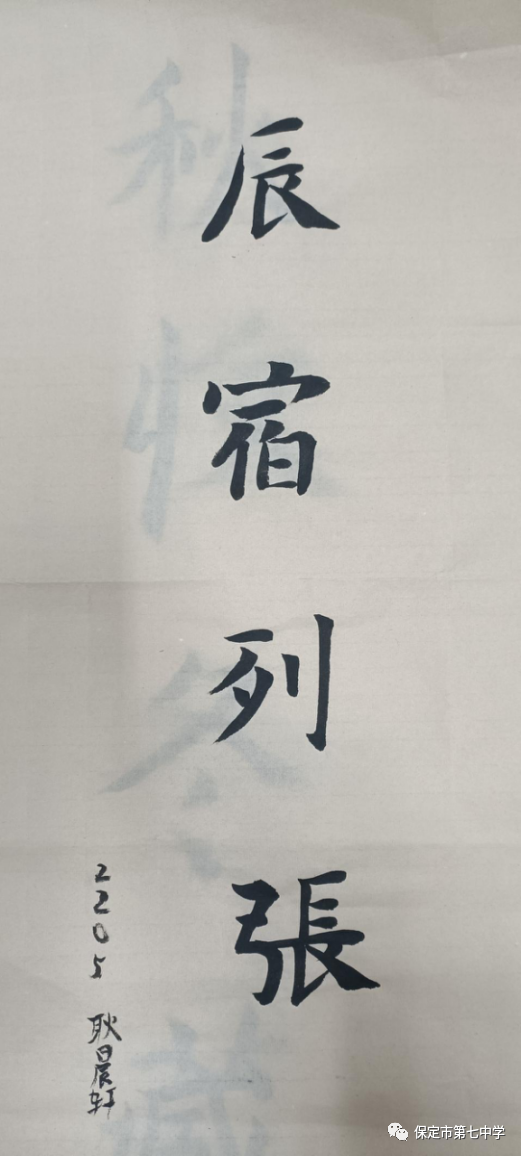 辰宿列張
2205 耿晨轩
秋收冬藏
保定市第七中学